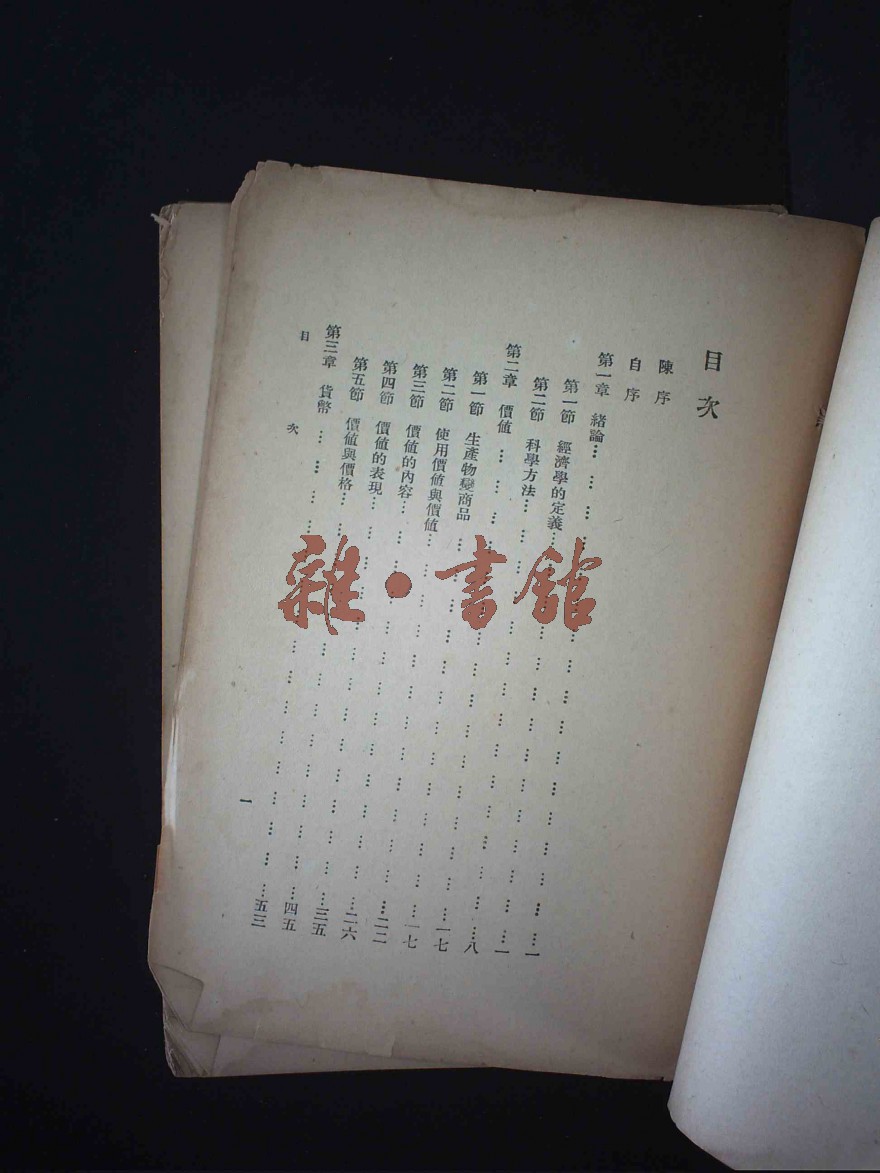 目次
陳序
自序
第一章 緒論………………一
第一節 經濟學的定義………………一
第二節 科學方法………………八
第二章 價值………………一七
第一節 生產物變商品………………一七
第二節 使用價值與價值………………二二
第三節 價值的內容………………二六
第四節 價值的表現………………三五
第五節 價值與價格………………四五
第三章 貨幣………………五三
目 次 一
雜·書館